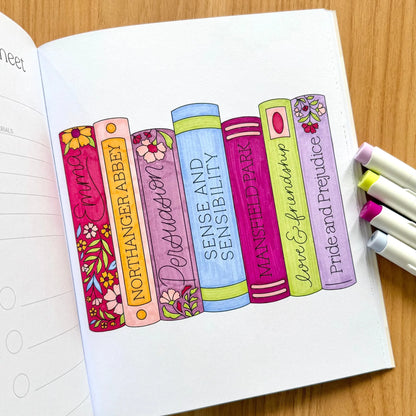 neet
Emma
NORTHANGER ABBEY
Persuasion
SENSE AND
SENSIBILITY
MANSFIELD PARK
love & friendship
Pride and Prejudice